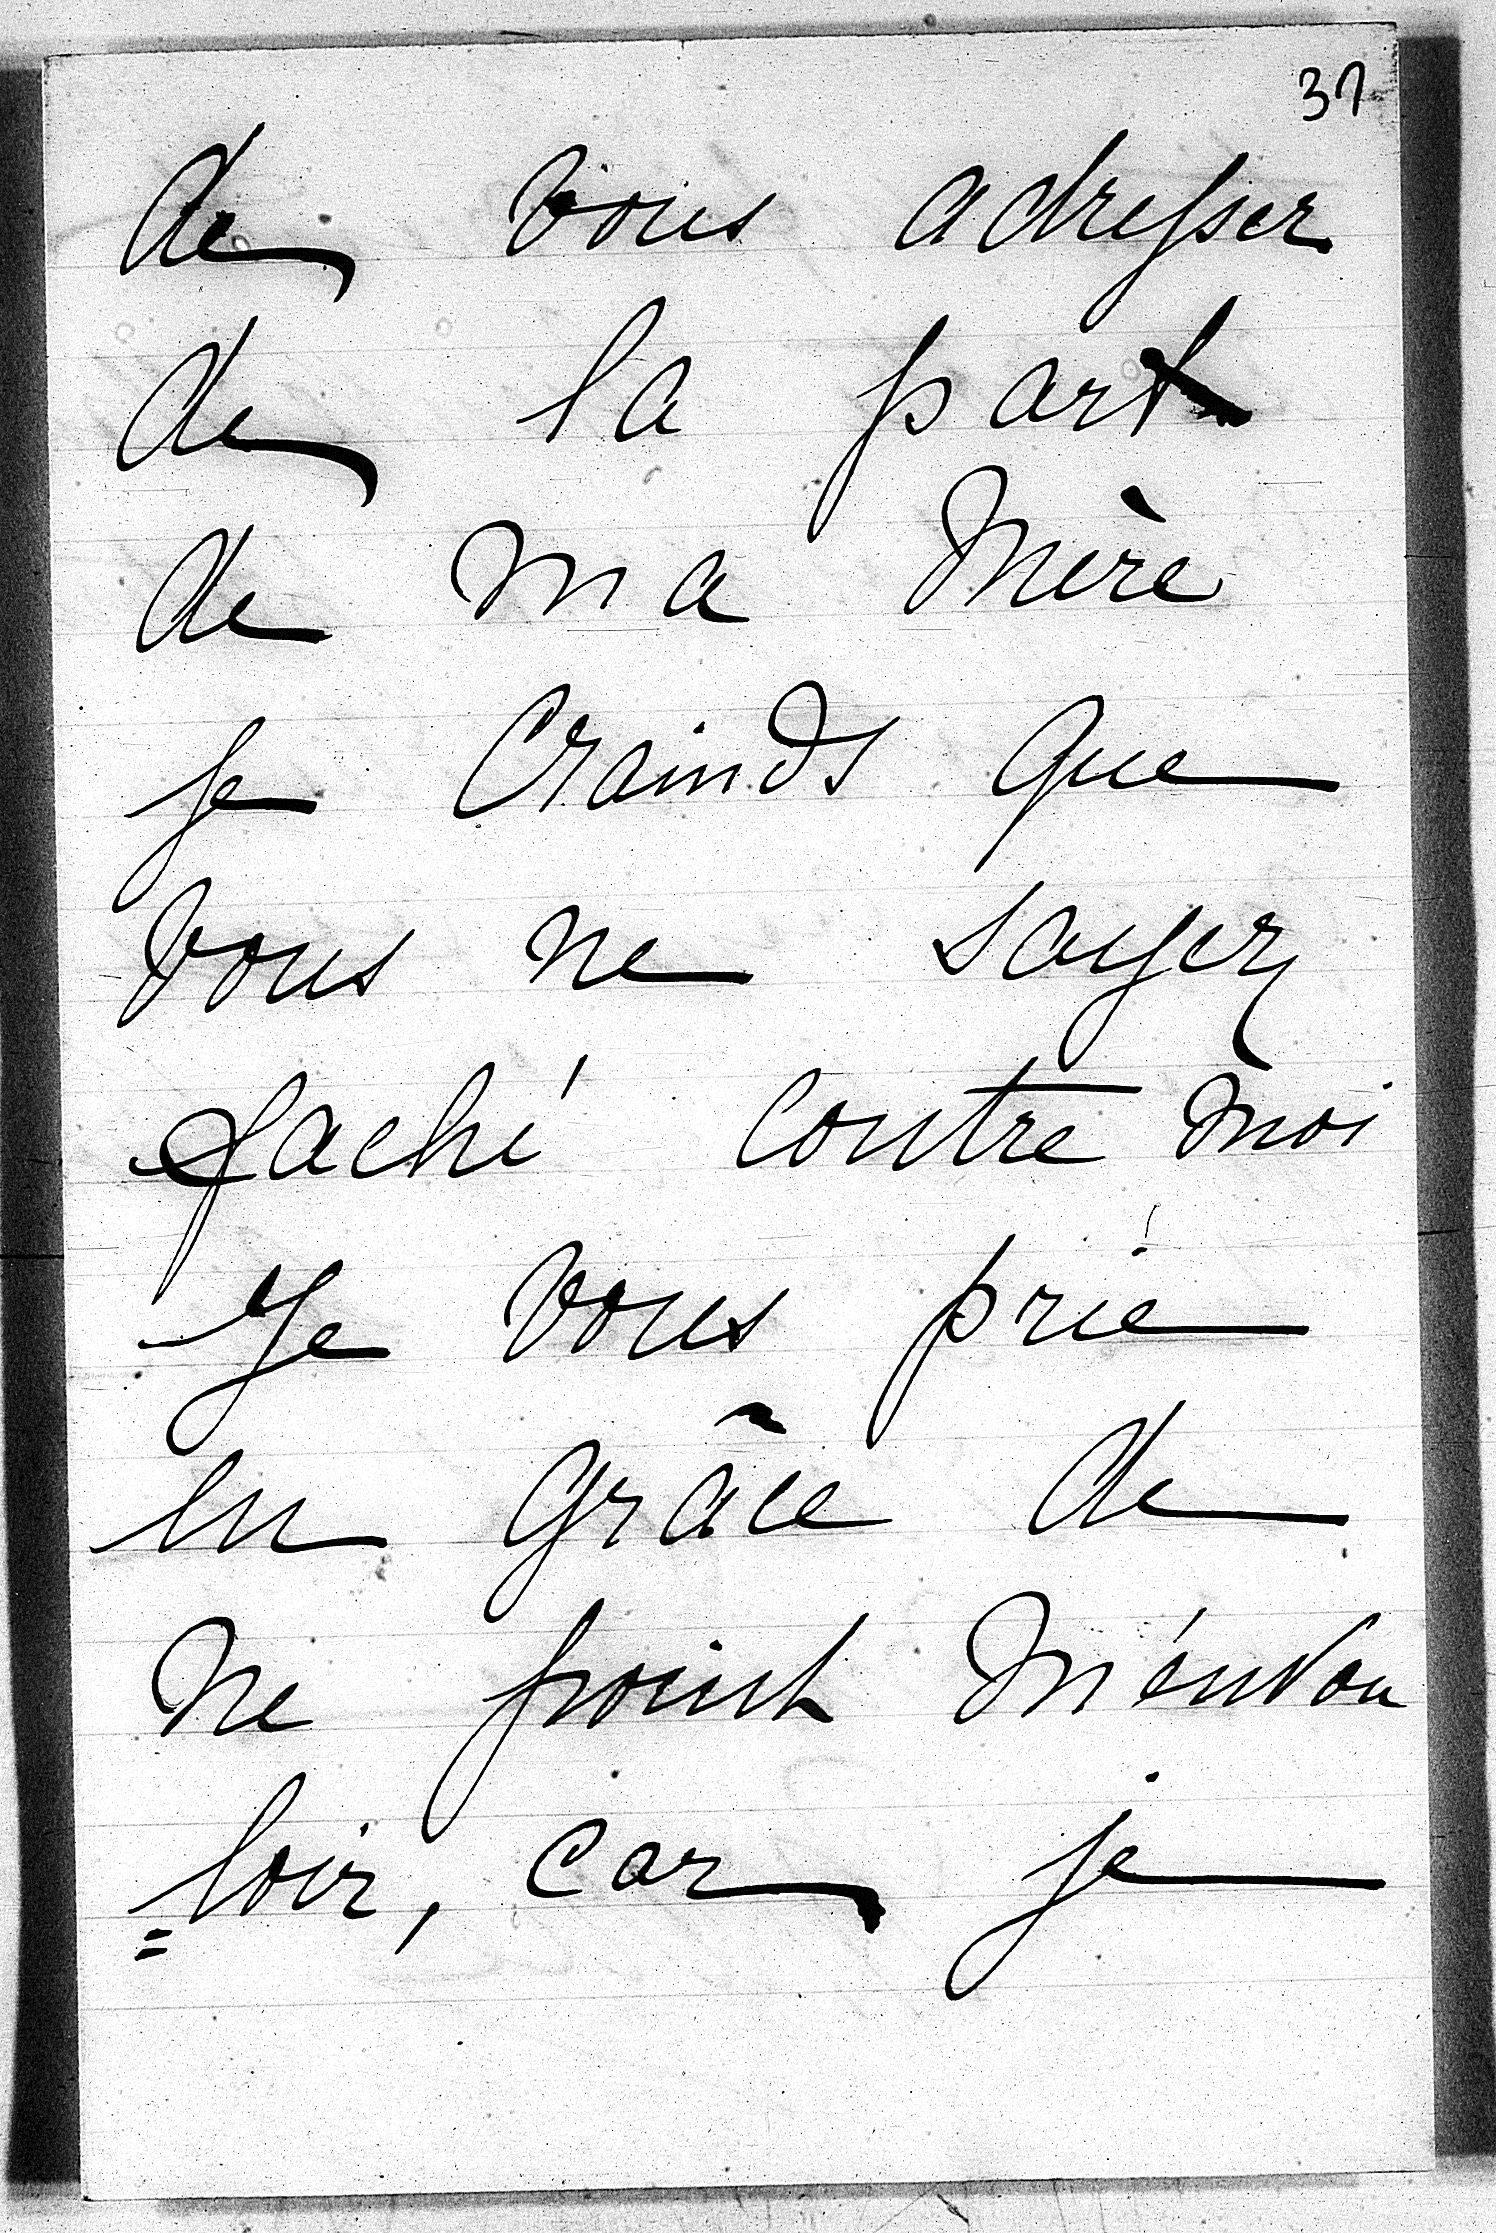 37
de vous adresser
de la part
de ma Mère
je Crains que
Vous ne soyez
faché contre moi
Je vous prie
en Grâce de
Ne point M'en vou
=loir, car je